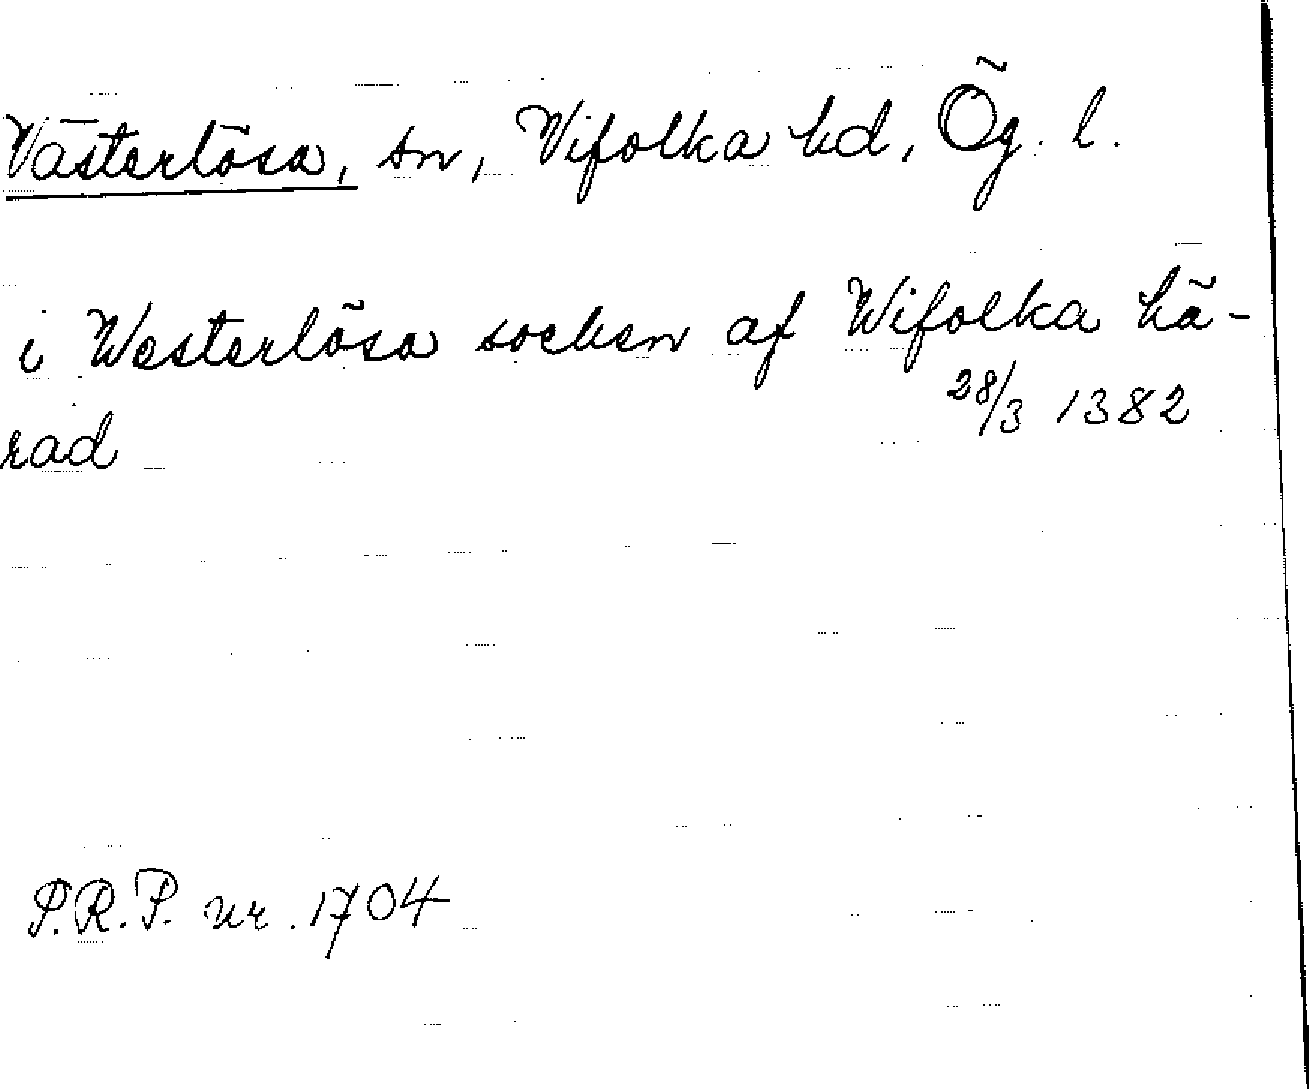 Västerlösa, sn, Vifolka hd, Ög. l.
i Westerlösa socken af Wifolka hä-
rad 28/3 1382
P.R.P. nr. 1704